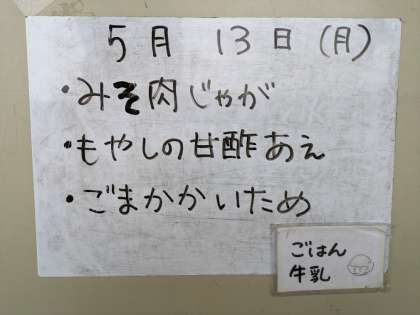 5月 13日(月)
・みそ肉じゃが
・もやしの甘酢あえ
・ごまかかいため
ごはん
牛乳